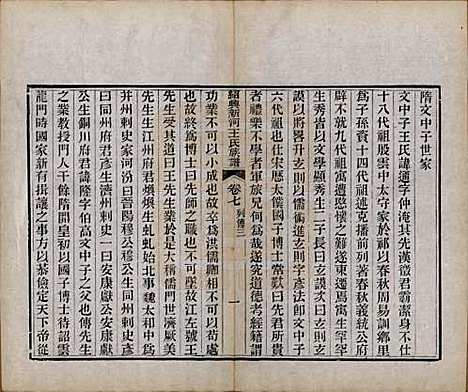 隋文中子世家
文中子王氏諱通字仲淹其先漢徵君霸潔身不仕
十八代祖殷雲中太守家於祁以春秋周易訓鄉里
為子孫資十四代祖述克播前烈著春秋義統公府
辟不就九代祖寓遭愍懷之難遂東遷焉寓生罕罕
生秀皆以文學顯秀生二子長曰玄謨次曰玄則玄
謨以將略升玄則以儒術進玄則字彥法即文中子
六代祖也仕宋歷太僕國子博士常歎曰先君所貴
者禮樂不學者軍旅兄何為哉遂究道德考經籍謂
紹興新河王氏族譜
卷七
列傳二
一
功業不可以小成也故卒為洪儒卿相不可以苟處
也故終為博士曰先師之職也不可墜故江左號王
先生受其道曰王先生業於是大稱儒門世濟厥美
先生生江州府君煥煥生虬虬始北事魏太和中為
并州刺史家河汾曰晉陽穆公穆公生同州刺史彥
曰同州府君彥生濟州刺史一曰安康獻公安康獻
公生銅川府君諱隆字伯高文中子之父也傳先生
之業教授門人千餘隋開皇初以國子博士待詔雲
龍門時國家新有揖讓之事方以恭儉定天下帝從